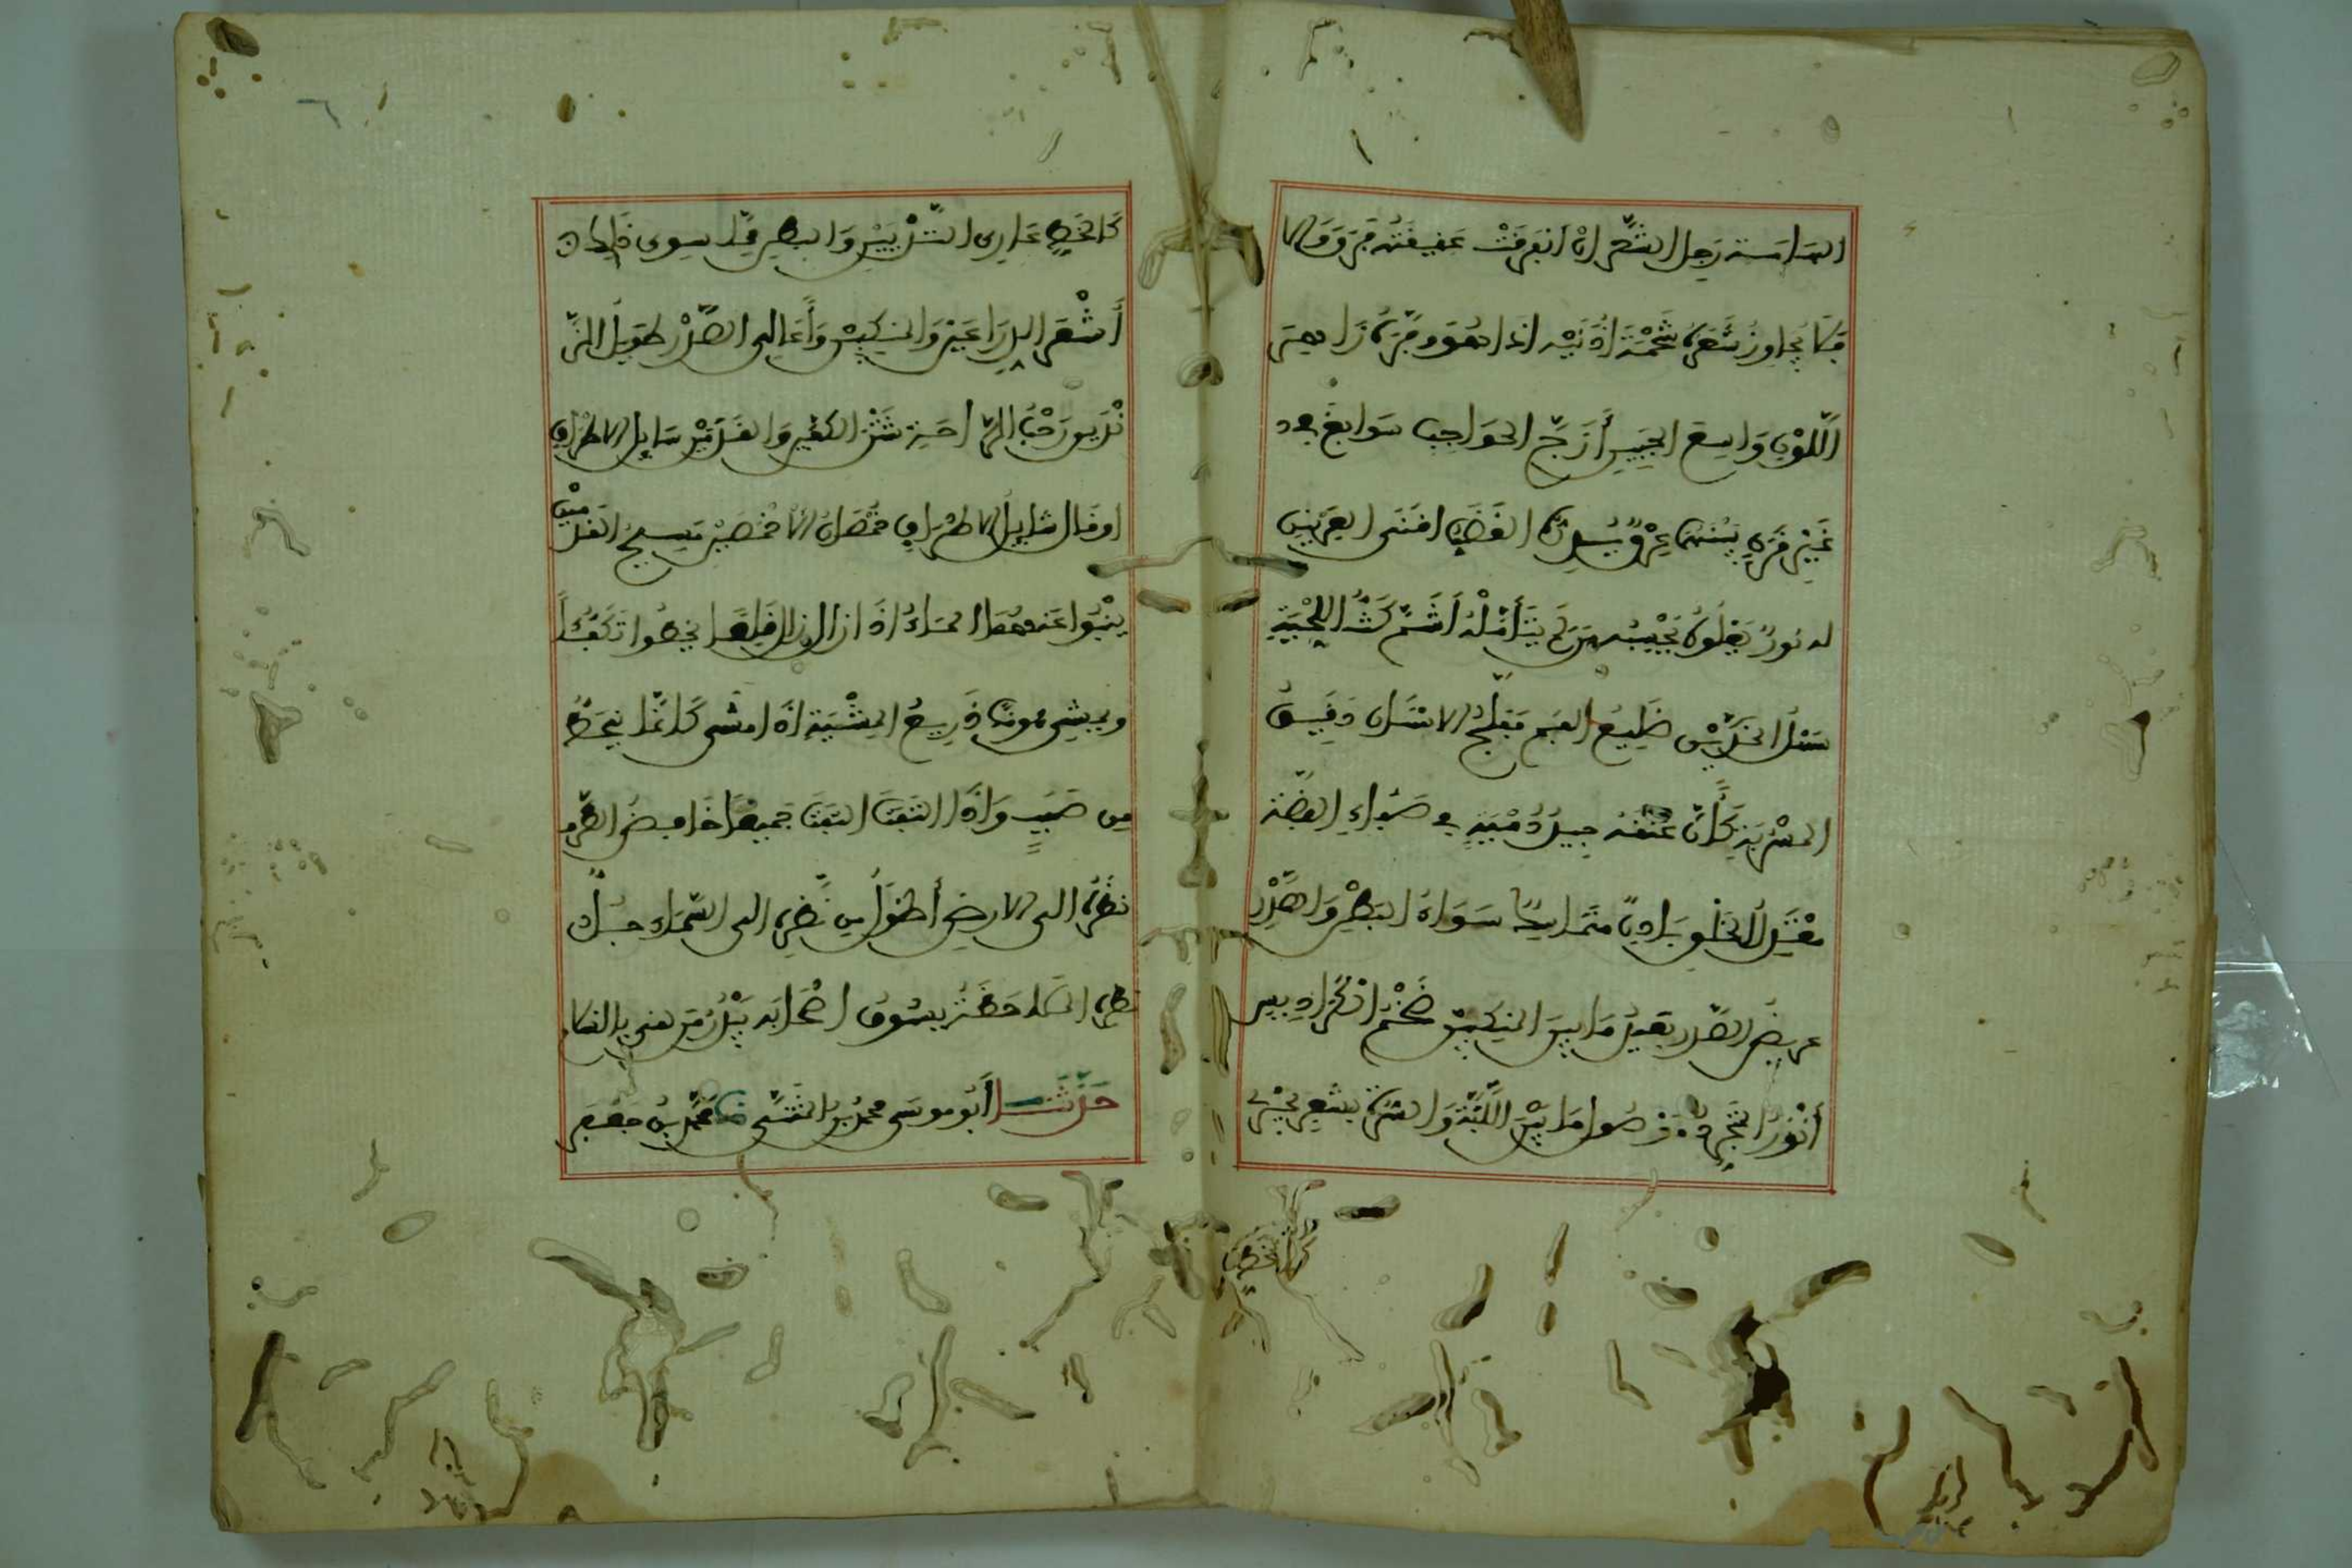 الهَامَة رَجِلَ الشَّعَرِ ان انفرقَتْ عقيقَتُه فَرَق وَالا
فَلَا يُجَاوِزُ شَعَرُهُ شَحْمَةَ أُذُنَيْه اذا هُوَ وَفَّرَهُ زَاهِرَ
اللَّوْنِ وَاسِعَ الجَبِينِ أَزَجَّ الحَوَاجِبِ سَوَابِغَ في
غَيْرِ قَرَنٍ بَيْنَهُمَا عِرْقٌ يُدِرُّهُ الغَضَبُ اقنَى العِرْنِينِ
له نُورٌ يَعْلُوهُ يَحْسِبُه مَن لَم يَتَأَمَّلْهُ أَشَمَّ كَثَّ اللِّحْيَةِ
سَهْلَ الخَدَّيْنِ ضَلِيعَ الفَمِ مُفَلَّجَ الاسْنَانِ دَقِيقَ
المَسْرُبَةِ كَأَنَّ عُنُقَه جِيدُ دُمْيَةٍ في صَفَاءِ الفِضَّة
مُعْتَدِلَ الخَلْقِ بَادِنًا مُتَمَاسِكًا سَوَاءَ البَطْنِ وَالصَّدْرِ
عريضَ الصَّدر بَعِيدَ مَا بَيْنَ المَنكِبَيْنِ ضَخْمَ الكَرَادِيسِ
أَنْوَرَ المُتَجَرَّدِ مَوْصُولَ مَا بَيْنَ اللَّبَّةِ وَالسُّرَّةِ بِشَعَرٍ يَجْرِي
كَالخَطِّ عَارِيَ الثَّدْيَيْنِ وَالبطْنِ مِمَّا سِوَى ذَلِكَ
أَشْعَرَ الذِرَاعَيْنِ وَالمَنكِبَيْنِ وَأَعَالِي الصَّدْرِ طَوِيلَ الزَّ
نْدَيْنِ رَحْبَ الرَّاحَةِ شَثْنَ الكَفَّيْنِ وَالقَدَمَيْنِ سَايِلَ الاطْرَافِ
اوقَال شَايِلَ الاطْرَافِ خُمْصَانَ الأَخْمَصَيْنِ مَسِيحَ القَدَمَيْنِ
يَنْبُوا عَنهُمَا المَاءُ اذَا زَالَ زَالَ قَلِعًا يَخْطُوا تَكَفُّيًا
ويمشِي هَونًا ذَرِيعَ المِشْيَةِ اذَا مَشَى كَأَنَّمَا يَنْحَطُّ
مِن صَبَبٍ وَاذَا التَفَتَ التَفَتَ جَمِيعًا خَافِضَ الطَّرفِ
نَظَرُهُ الى الارضِ أَطْوَلُ مِن نَّظَرِهِ الى السَّمَاءِ جُلُّ
نَظَرِهِ المُلَاحَظَةُ يَسُوقُ اصْحَابَه يَبْدُرُ مَن لَقِيَ بِالسَّلَام
حَدَّثَنَا أَبُو مُوسَى محمدُ بن المُثَنَّى ثنا مُحَمَّدُ بنُ جَعْفَرٍ